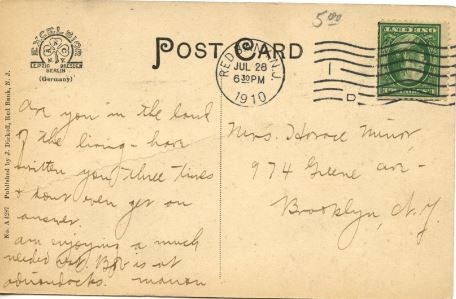 5.00
EXCELSIOR
N.Y.
LEIPZIG DRESDEN
BERLIN
(Germany)
POST CARD
RED BANK, N.J.
JUL 28
6 30 PM
1910
No. A 4297 Published by J. Diskoll, Red Bank, N. J.
Are you in the land
of the living - have
written you three times
& dont even get an
answer.
am enjoying a much
needed rest. Bob is at
adirondacks. marion
Mrs. Horace Minor
974 Greene ave -
Brooklyn, N.Y